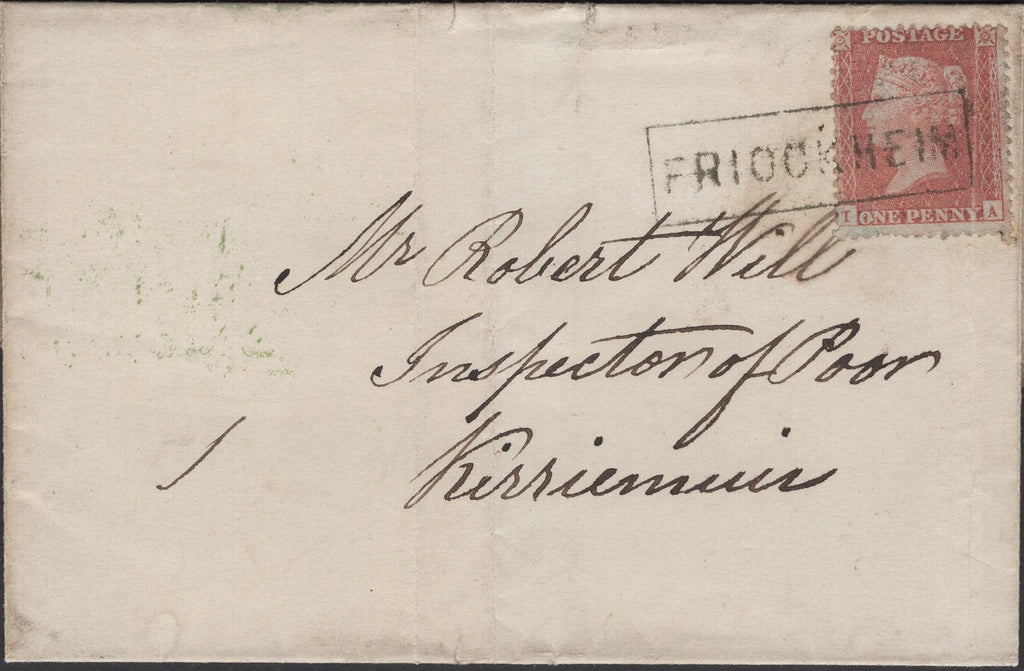 POSTAGE
FRIOCKHEIM
T ONE PENNY A
Mr Robert Will
Inspector of Poor
Kirriemuir